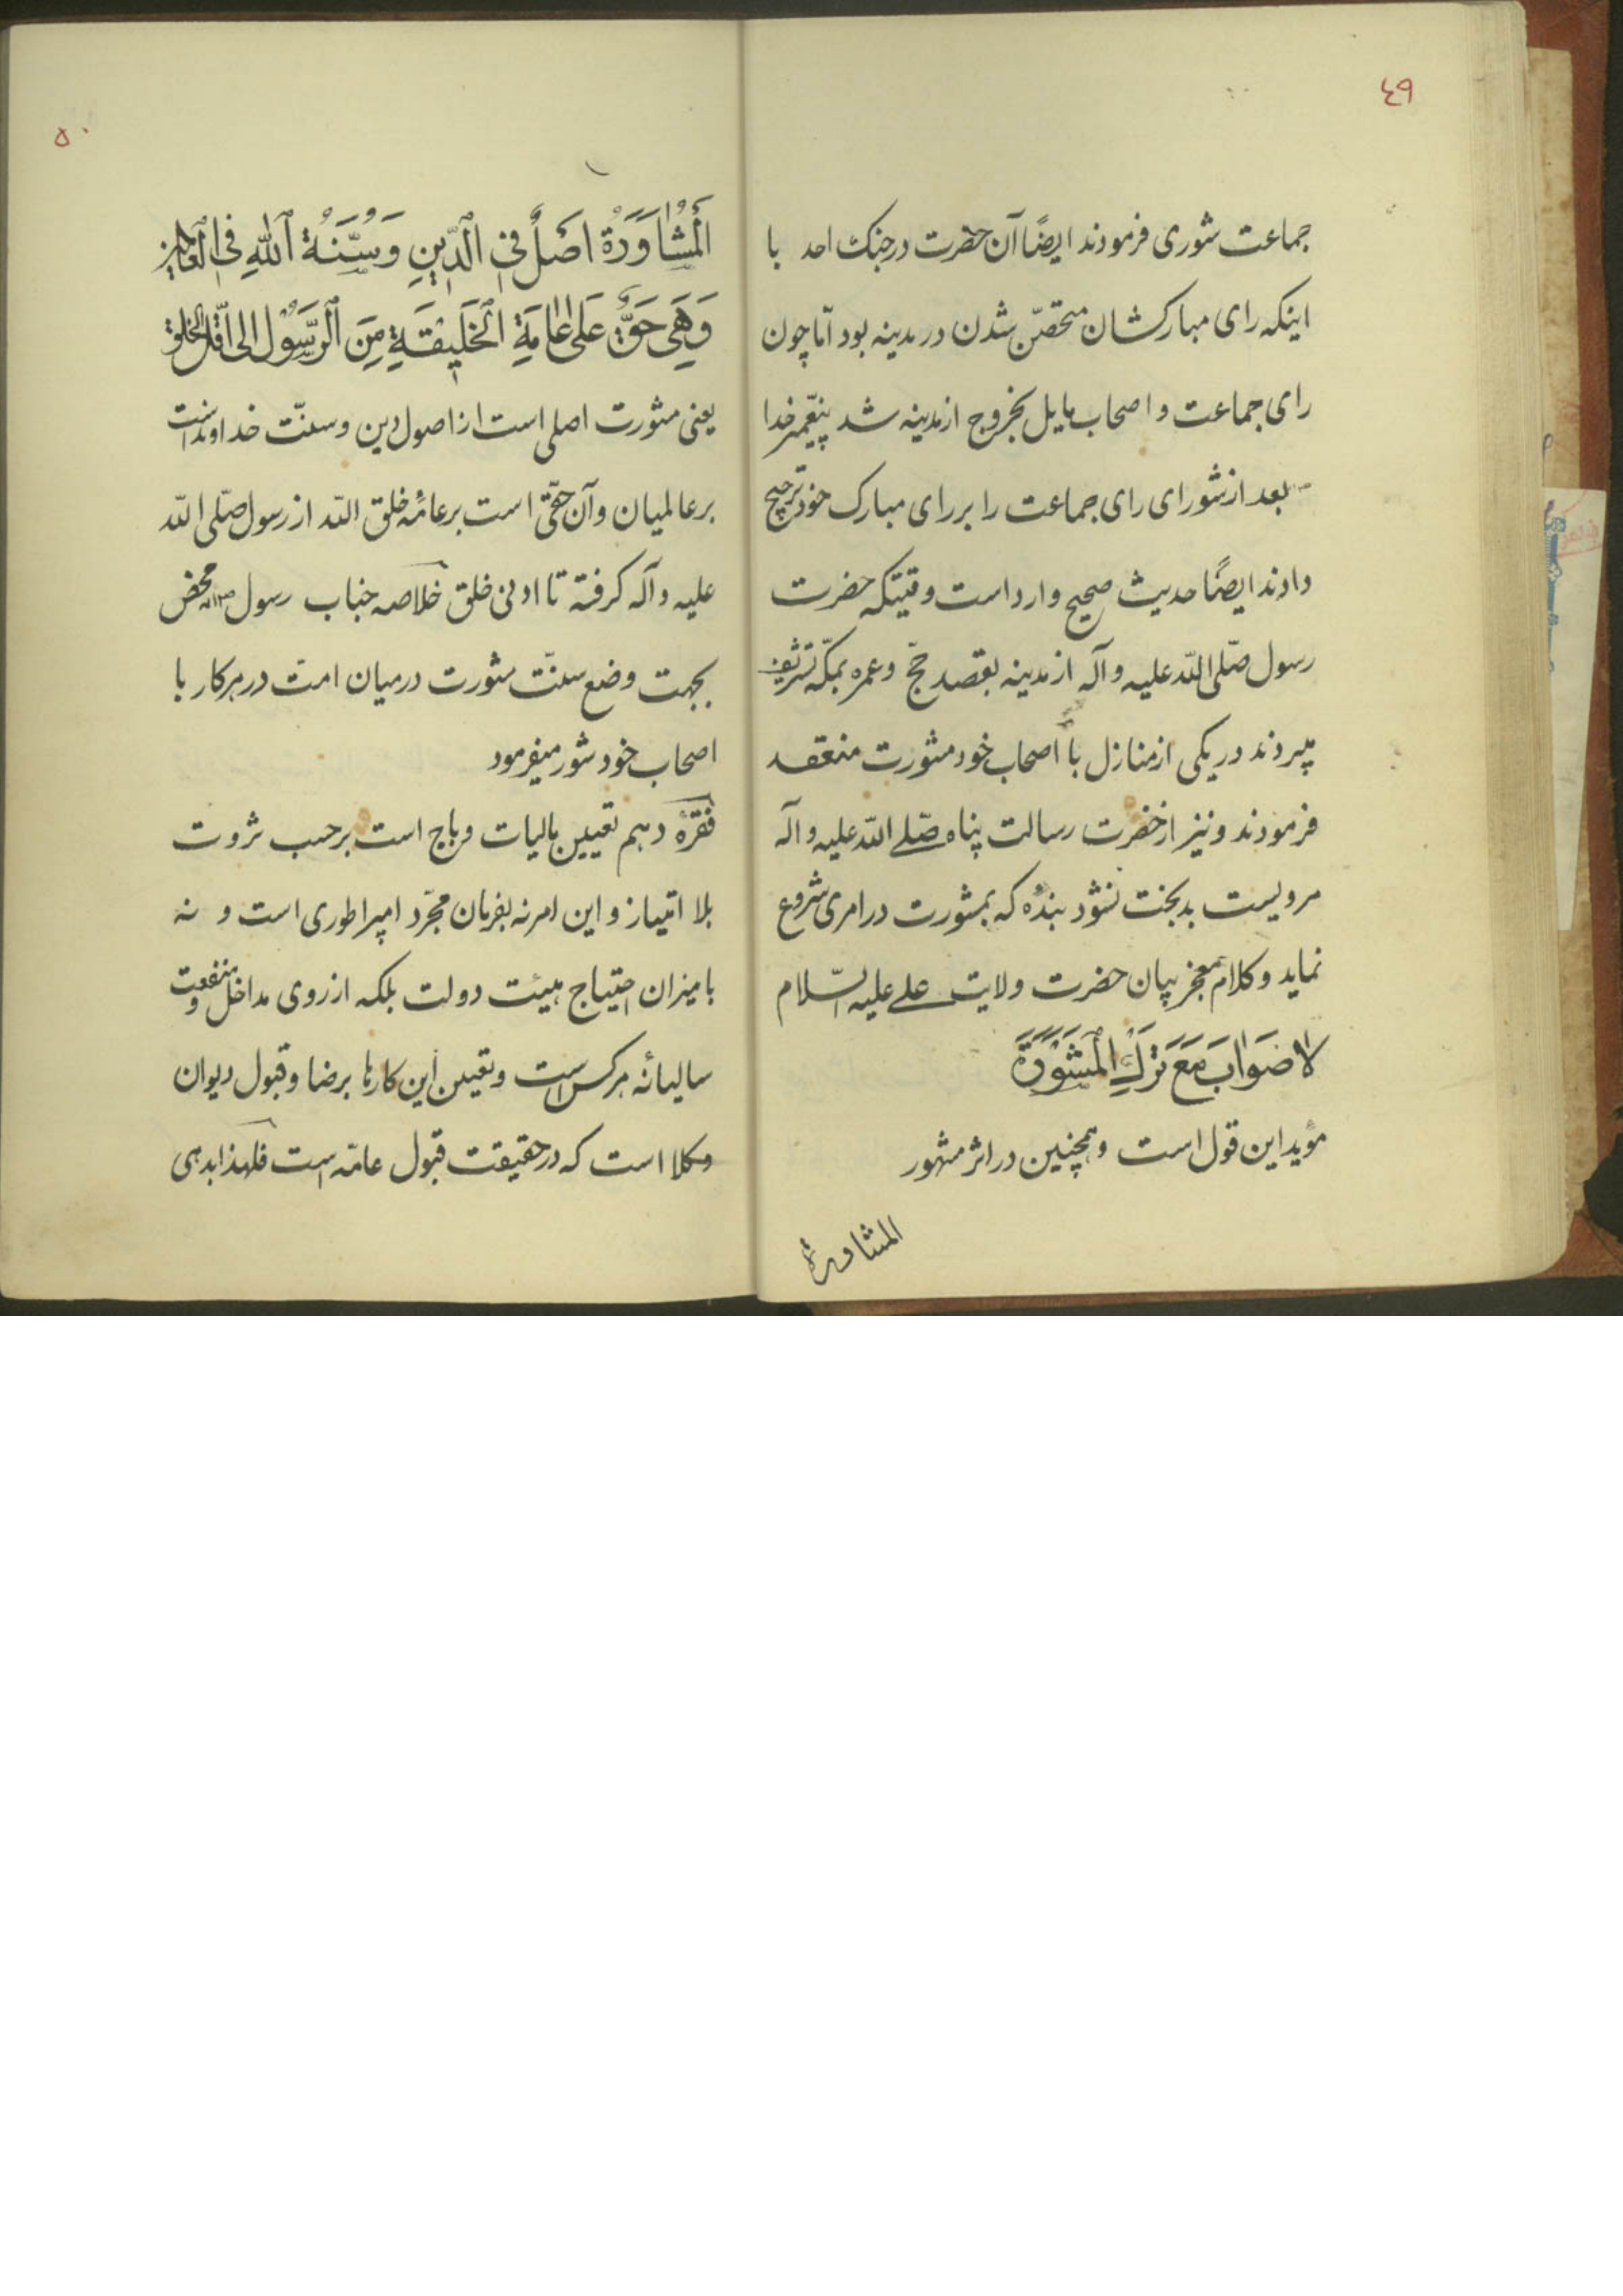 ٤٩
جماعت شوری فرمودند ایضًا آن حضرت در جنک احد با
اینکه رای مبارکشان متحصّن شدن در مدینه بود امّا چون
رای جماعت و اصحاب مایل بخروج از مدینه شد پیغمبر خدا
بعد از شورای رای جماعت را بر رای مبارک خود ترجیح
دادند ایضًا حدیث صحیح وارد است وقتیکه حضرت
رسول صلّی اللّه علیه و آله از مدینه بقصد حجّ و عمره بمکّه تشریف
میبردند در یکی از منازل با اصحاب خود مشورت منعقد
فرمودند و نیز از حضرت رسالت پناه صلّے اللّه علیه و آله
مرویست بدبخت نشود بندهٔ که بمشورت در امری شروع
نماید و کلام معجز بیان حضرت ولایت علے علیه السّلام
لا صَوابَ مَعَ تَرْكِ الْمَشْوَرَةِ
مؤید این قول است و همچنین در اثر مشهور
المشاورة
۵۰
اَلْمُشاوَرَةُ اَصْلٌ فِی الدّینِ وَسُنَّةُ اللّٰهِ فِی الْعالَمینَ
وَهِیَ حَقٌّ عَلی عامَّةِ الْخَلیقَةِ مِنَ الرَّسُولِ الی اَقَلِّ الخلق
یعنی مشورت اصلی است از اصول دین و سنّت خداوند است
بر عالمیان و آن حقّی است بر عامّهٔ خلق اللّه از رسول صلّی اللّه
علیه و آله کرفته تا ادنی خلق خلاصه جناب رسول محض
بجهت وضع سنّت مشورت در میان امّت در هر کار با
اصحاب خود شور میفرمود
فقرهٔ دهم تعیین مالیات و باج است بر حسب ثروت
بلا امتیاز و این امر نه بفرمان مجرّد امپراطوری است و نه
با میزان احتیاج هیئت دولت بلکه از روی مداخل و منفعت
سالیانهٔ هر کس است و تعیین این کارها برضا و قبول دیوان
وکلا است که در حقیقت قبول عامّه است فلهذا بدهی